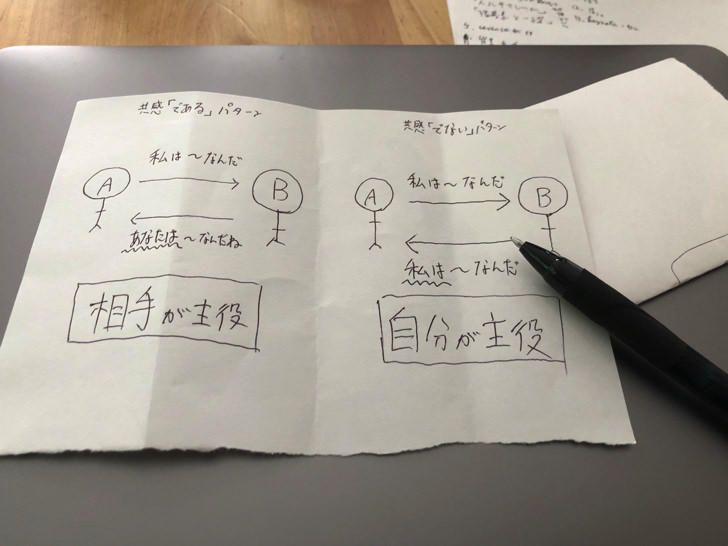 共感「である」パターン
A
私は〜なんだ
B
あなたは〜なんだね
相手が主役
共感「でない」パターン
A
私は〜なんだ
B
私は〜なんだ
自分が主役